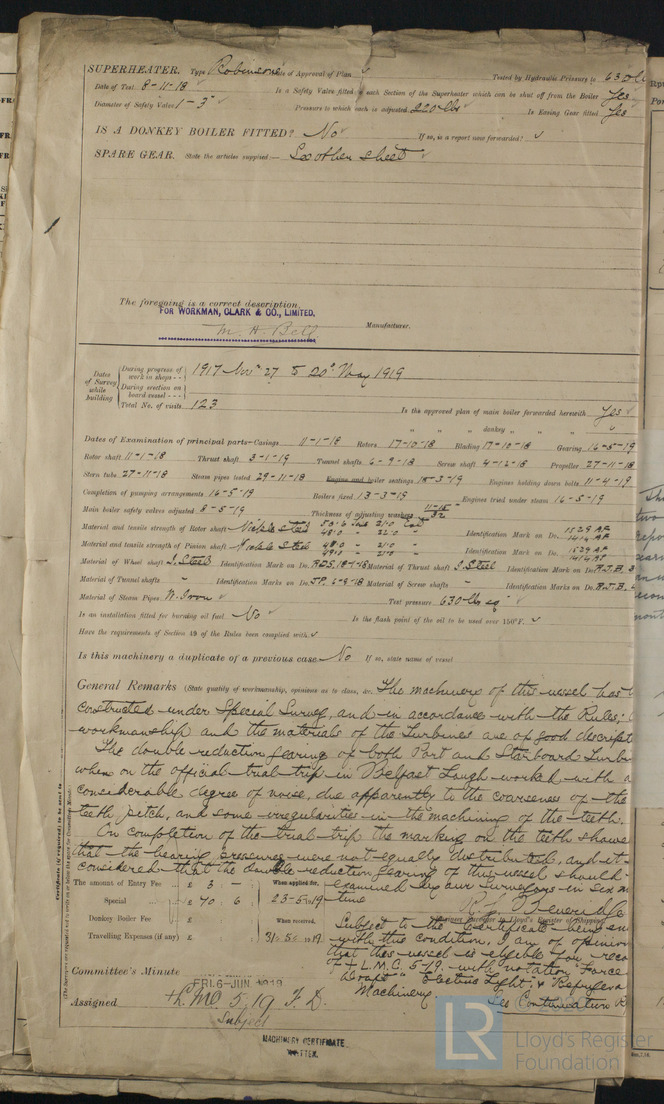 SUPERHEATER. Type Robinson's Date of Approval of Plan ✓ Tested by Hydraulic Pressure to 630 lbs
Date of Test 8-11-18 Is a Safety Valve fitted to each Section of the Superheater which can be shut off from the Boiler Yes
Diameter of Safety Valve 1-3" Pressure to which each is adjusted 220 lbs Is Easing Gear fitted Yes
IS A DONKEY BOILER FITTED? No If so, is a report now forwarded? ✓
SPARE GEAR. State the articles supplied:— See other sheet
The foregoing is a correct description,
FOR WORKMAN, CLARK & CO., LIMITED.
M. H. Bell Manufacturer.
Dates of Survey while building
During progress of work in shops - - 1917 Nov 27 to 20th May 1919
During erection on board vessel - - -
Total No. of visits 123
Is the approved plan of main boiler forwarded herewith Yes
" " " donkey " " "
Dates of Examination of principal parts—Casings 11-1-18 Rotors 17-10-18 Blading 17-10-18 Gearing 16-5-19
Rotor shaft 11-1-18 Thrust shaft 3-1-19 Tunnel shafts 6-9-18 Screw shaft 4-12-18 Propeller 27-11-18
Stern tube 27-11-18 Steam pipes tested 29-11-18 Engine and boiler seatings 18-3-19 Engines holding down bolts 11-4-19
Completion of pumping arrangements 16-5-19 Boilers fixed 13-3-19 Engines tried under steam 16-5-19
Main boiler safety valves adjusted 8-5-19 Thickness of adjusting washers 11-15 32
Material and tensile strength of Rotor shaft Nickle Steel Identification Mark on Do. 1529 AF 1414 AF
Material and tensile strength of Pinion shaft Nickle Steel Identification Mark on Do. 1529 AF 1414 AF
Material of Wheel shaft I. Steel Identification Mark on Do. RDS. 18-7-18 Material of Thrust shaft I. Steel Identification Mark on Do. R.J.B.
Material of Tunnel shafts " Identification Marks on Do. JP. 6-9-18 Material of Screw shafts " Identification Marks on Do. R.J.B.
Material of Steam Pipes W. Iron Test pressure 630 lbs sq"
Is an installation fitted for burning oil fuel No Is the flash point of the oil to be used over 150°F. ✓
Have the requirements of Section 49 of the Rules been complied with ✓
Is this machinery a duplicate of a previous case No If so, state name of vessel
General Remarks (State quality of workmanship, opinions as to class, &c. The machinery of this vessel has b
constructed under Special Survey, and in accordance with the Rules;
workmanship and the materials of the Turbines are of good descript
The double reduction gearing of both Port and Starboard Turbi
when on the official trial trip in Belfast Lough worked with a
considerable degree of noise, due apparently to the coarseness of the
teeth pitch, and some irregularities in the machining of the teeth.
On completion of the trial trip the marking on the teeth showe
that the bearing pressures were not equally distributed, and it
considered that the double reduction gearing of this vessel should
examined by our Surveyors in six m
time
The amount of Entry Fee £ 3 : – : When applied for,
Special £ 70 : 6 : 23-5-1919
Donkey Boiler Fee £ When received,
Travelling Expenses (if any) £ 31-5-1919
R. J. Beveridge
Engineer Surveyor to Lloyd's Register of Shipping
Subject to the Certificate being en
with this condition, I am of opinion
that this vessel is eligible for reco
+ L.M.C. 5-19. with notation "Force
Draft" Electric Light, & Refrigera
Machinery. See Continuation R
Committee's Minute FRI. 6-JUN 1919
Assigned + L.M.C. 5.19 F.D.
Subject
MACHINERY CERTIFICATE
WRITTEN.
LR Lloyd's Register
Foundation